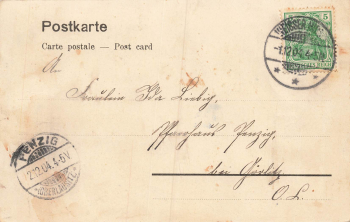 Postkarte
Carte postale — Post card
An
Fräulein Ida Liebig,
Pfarrhaus Penzig,
bei Görlitz
O. L.
5
PENZIG
2.12.04. 4-5 V.
(OBERLAUSITZ)